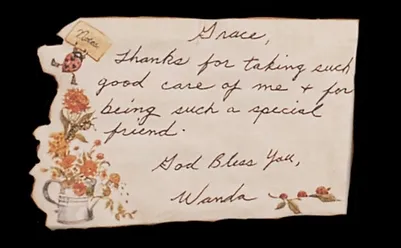 Notes
Grace,
Thanks for taking such
good care of me + for
being such a special
friend.
God Bless You,
Wanda